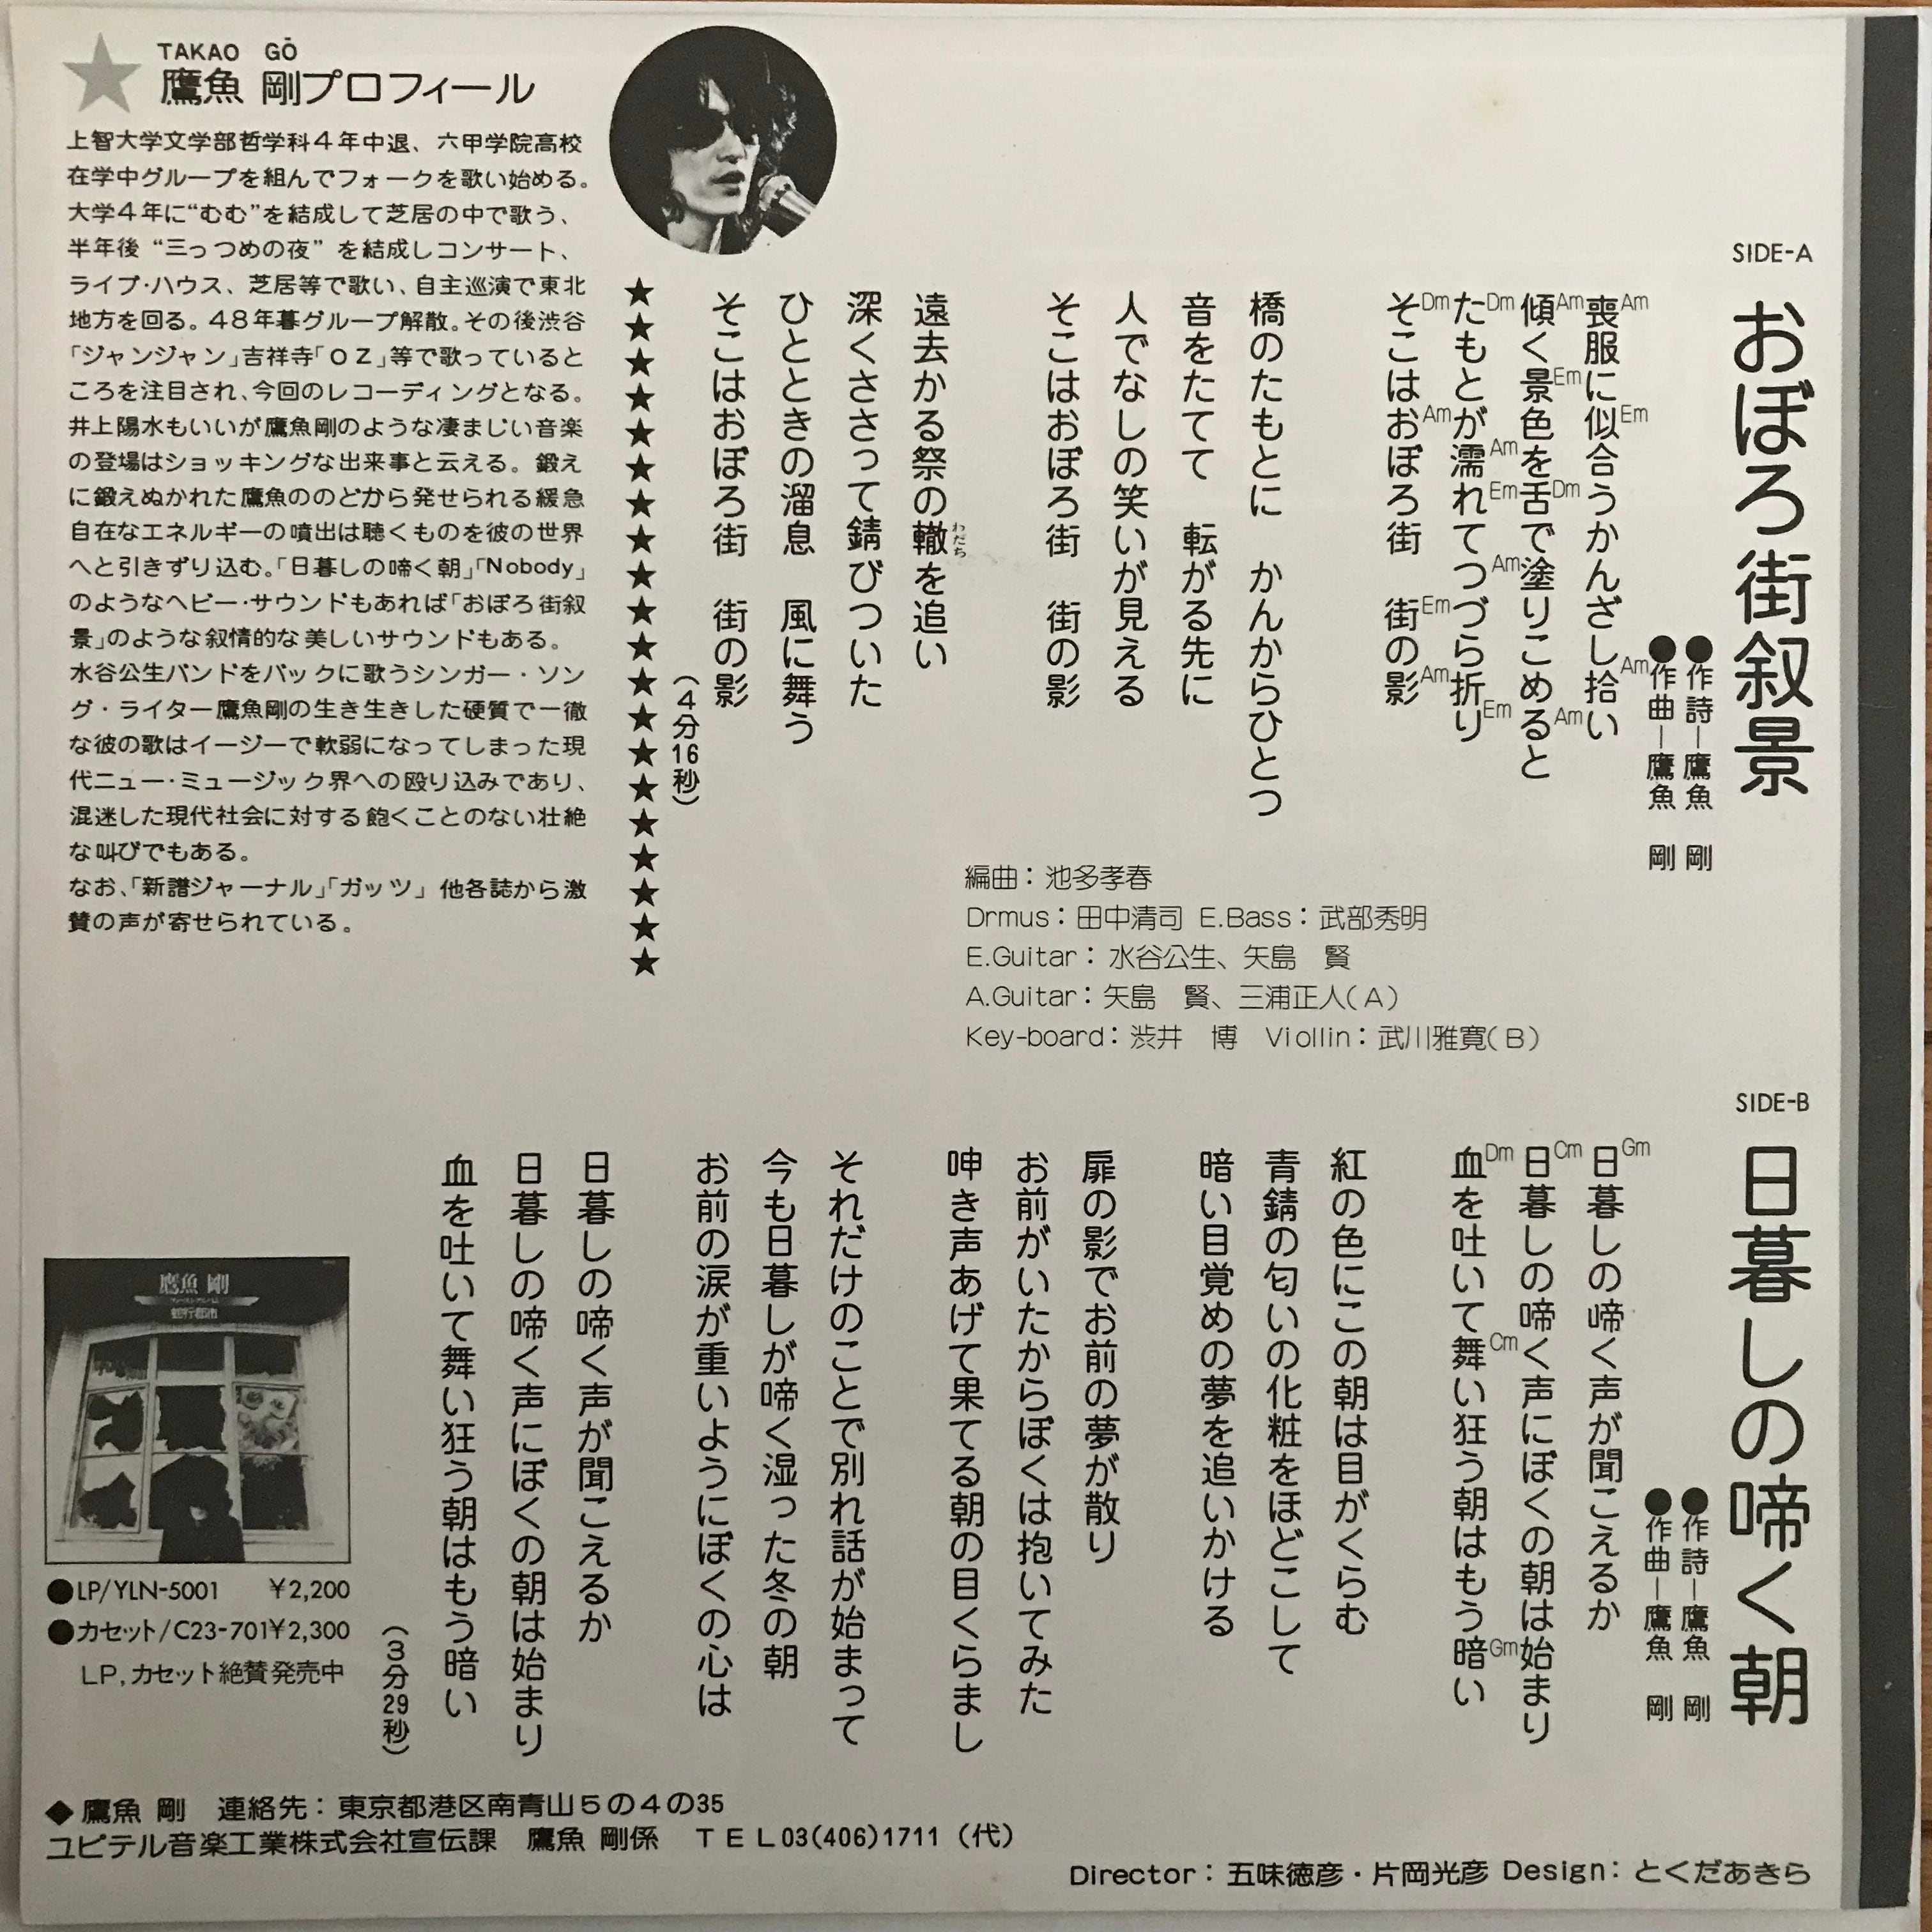 SIDE-A
おぼろ街叙景
●作詩―鷹魚 剛
●作曲―鷹魚 剛
Am Em Am
喪服に似合うかんざし拾い
Am Em Dm Am
傾く景色を舌で塗りこめると
Dm Am Em Am Em
たもとが濡れてつづら折り
Dm Am Em Am
そこはおぼろ街 街の影
橋のたもとに かんからひとつ
音をたてて 転がる先に
人でなしの笑いが見える
そこはおぼろ街 街の影
遠去かる祭の轍を追い
わだち
深くささって錆びついた
ひとときの溜息 風に舞う
そこはおぼろ街 街の影
(4分16秒)
編曲：池多孝春
Drmus：田中清司 E.Bass：武部秀明
E.Guitar：水谷公生、矢島 賢
A.Guitar：矢島 賢、三浦正人(A)
Key-board：渋井 博 Viollin：武川雅寛(B)
★★★★★★★★★★★★★★★★★★★★
TAKAO GŌ
★鷹魚 剛プロフィール
上智大学文学部哲学科4年中退、六甲学院高校
在学中グループを組んでフォークを歌い始める。
大学4年に“むむ”を結成して芝居の中で歌う、
半年後“三っつめの夜”を結成しコンサート、
ライブ・ハウス、芝居等で歌い、自主巡演で東北
地方を回る。48年暮グループ解散。その後渋谷
「ジャンジャン」吉祥寺「OZ」等で歌っていると
ころを注目され、今回のレコーディングとなる。
井上陽水もいいが鷹魚剛のような凄まじい音楽
の登場はショッキングな出来事と云える。鍛え
に鍛えぬかれた鷹魚ののどから発せられる緩急
自在なエネルギーの噴出は聴くものを彼の世界
へと引きずり込む。「日暮しの啼く朝」「Nobody」
のようなヘビー・サウンドもあれば「おぼろ街叙
景」のような叙情的な美しいサウンドもある。
水谷公生バンドをバックに歌うシンガー・ソン
グ・ライター鷹魚剛の生き生きした硬質で一徹
な彼の歌はイージーで軟弱になってしまった現
代ニュー・ミュージック界への殴り込みであり、
混迷した現代社会に対する飽くことのない壮絶
な叫びでもある。
なお、「新譜ジャーナル」「ガッツ」他各誌から激
賛の声が寄せられている。
SIDE-B
日暮しの啼く朝
●作詩―鷹魚 剛
●作曲―鷹魚 剛
Gm
日暮しの啼く声が聞こえるか
Cm
日暮しの啼く声にぼくの朝は始まり
Dm Cm Gm
血を吐いて舞い狂う朝はもう暗い
紅の色にこの朝は目がくらむ
青錆の匂いの化粧をほどこして
暗い目覚めの夢を追いかける
扉の影でお前の夢が散り
お前がいたからぼくは抱いてみた
呻き声あげて果てる朝の目くらまし
それだけのことで別れ話が始まって
今も日暮しが啼く湿った冬の朝
お前の涙が重いようにぼくの心は
日暮しの啼く声が聞こえるか
日暮しの啼く声にぼくの朝は始まり
血を吐いて舞い狂う朝はもう暗い
(3分29秒)
鷹魚 剛
蛇行都市
●LP/YLN-5001 ¥2,200
●カセット/C23-701¥2,300
LP,カセット絶賛発売中
◆鷹魚 剛 連絡先：東京都港区南青山5の4の35
ユピテル音楽工業株式会社宣伝課 鷹魚 剛係 TEL03(406)1711(代)
Director：五味徳彦・片岡光彦 Design：とくだあきら